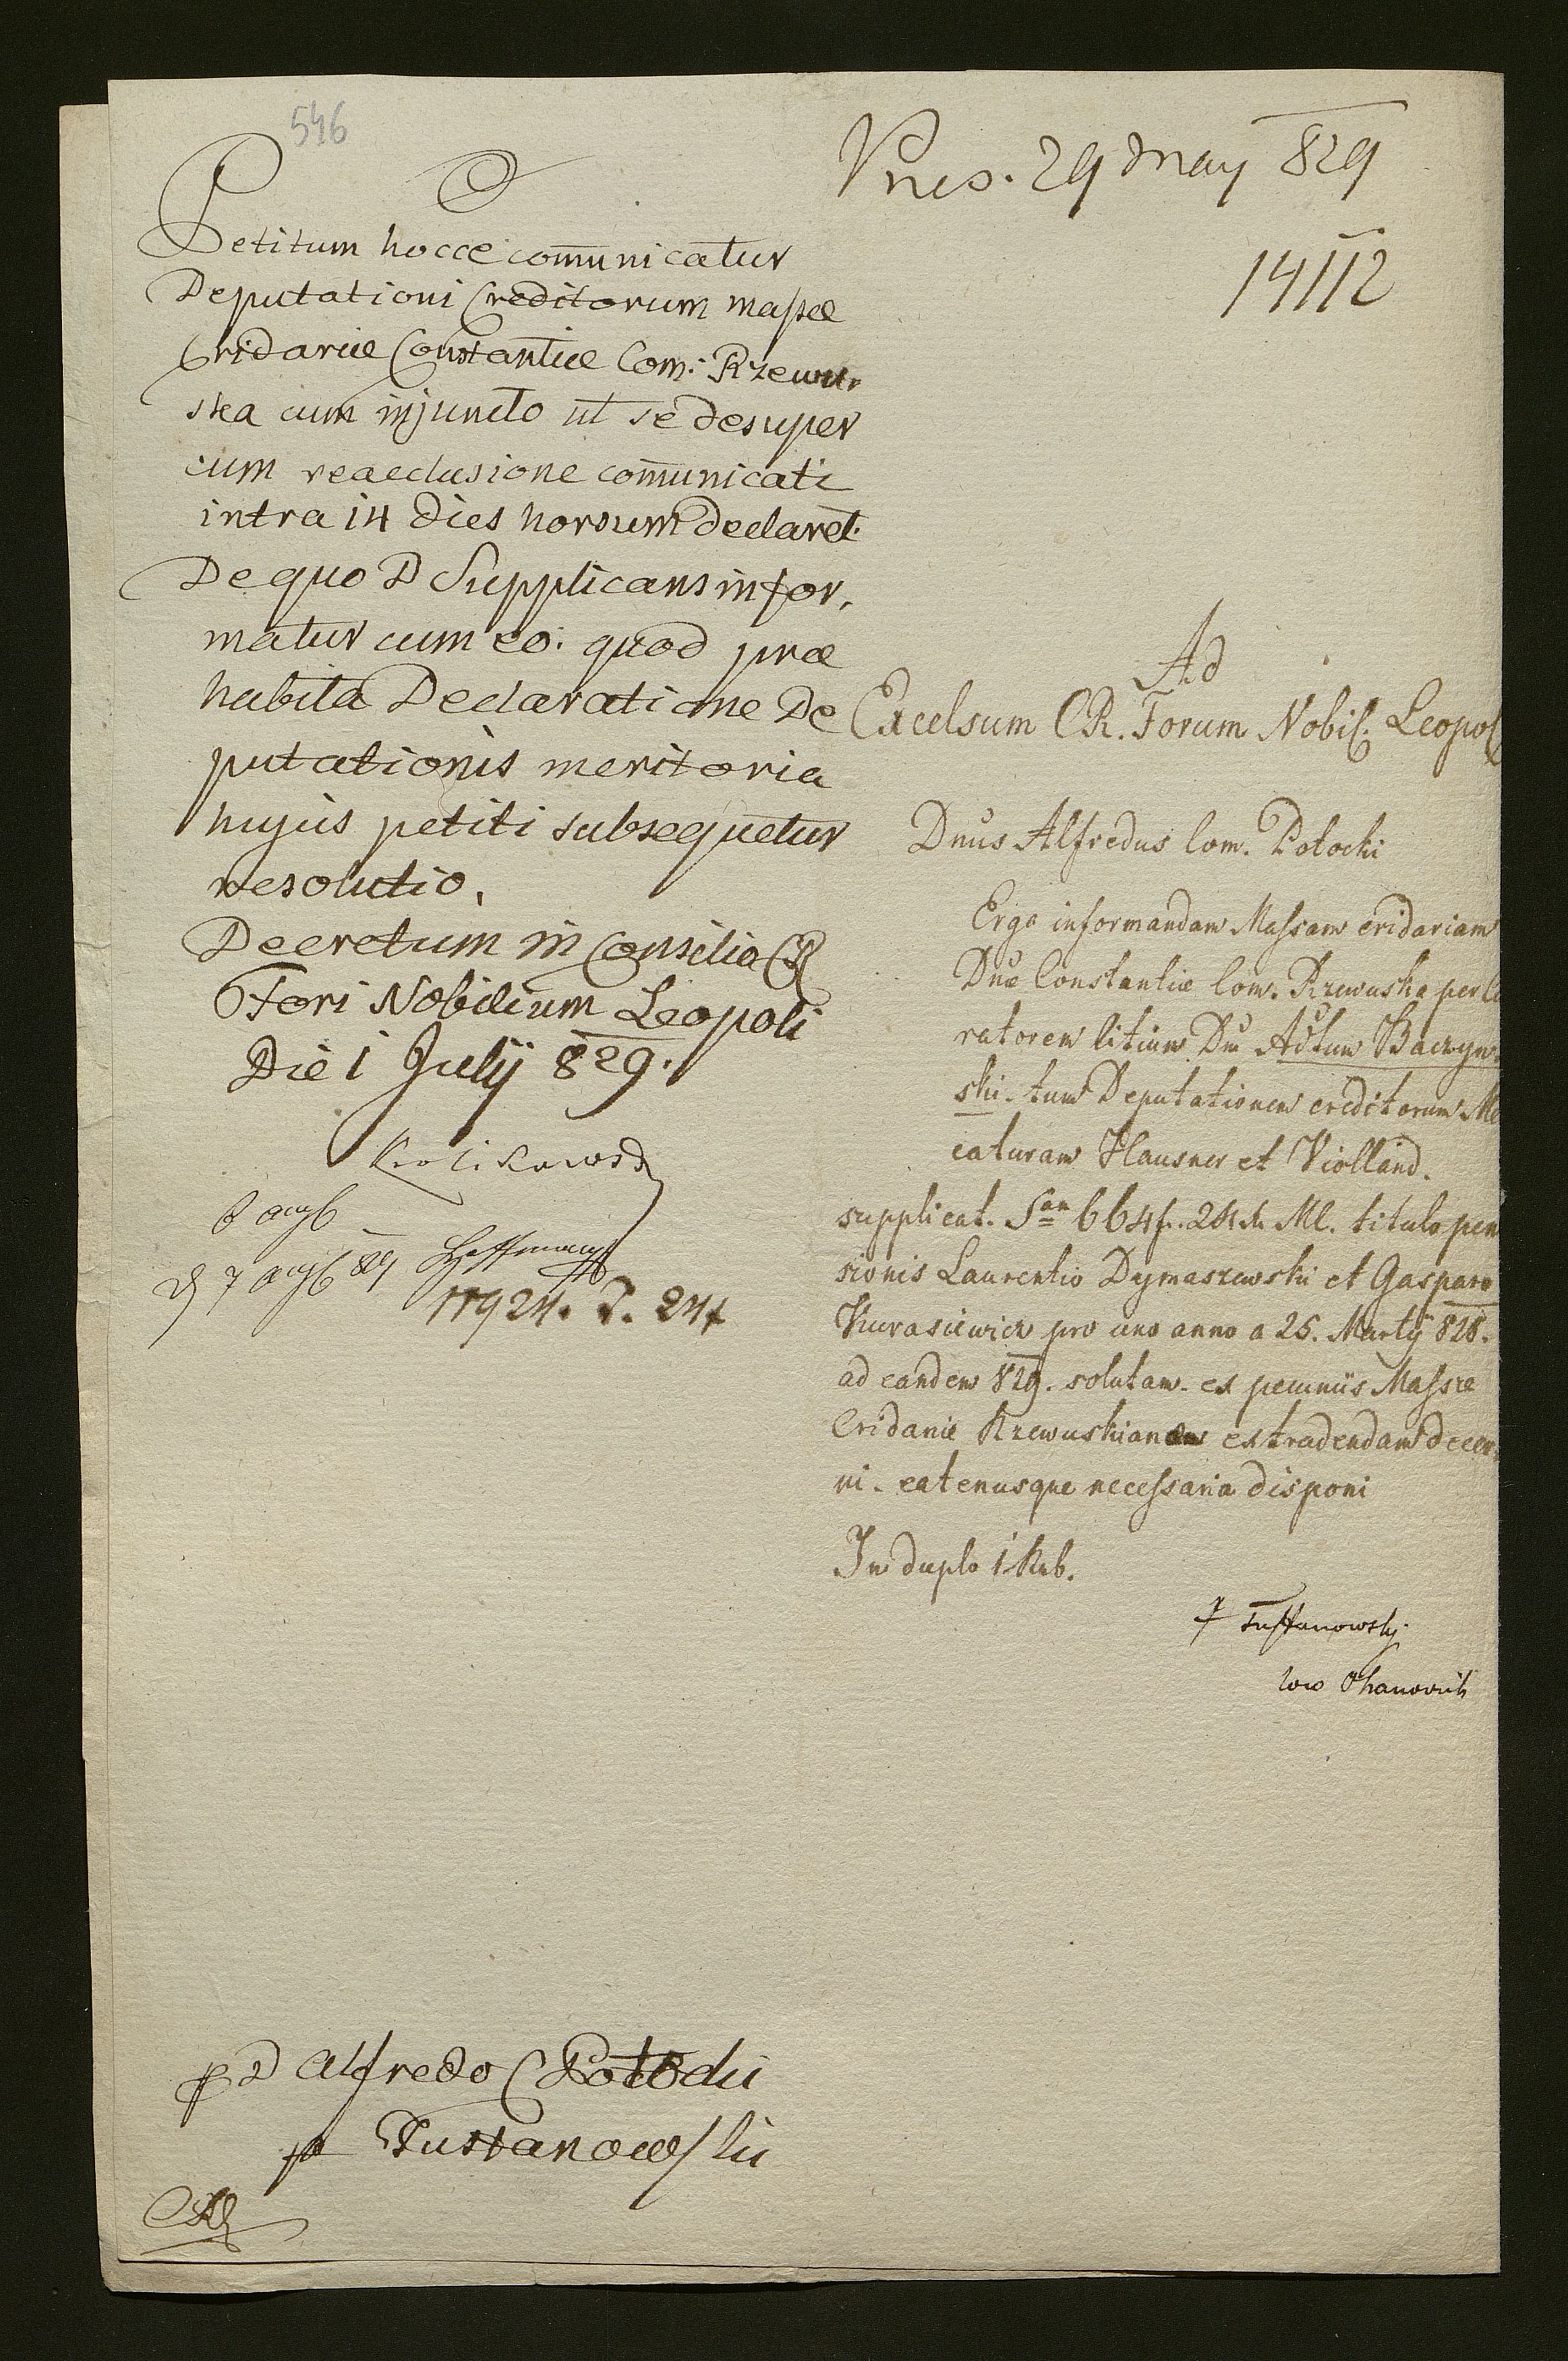 546
Petitum hocce com̄unicatur
Deputationi Creditorum massae
Cridariae Constantiae Com: Rzewu-
ska cum injuncto ut se desuper
cum reacclusione com̄unicati
intra 14 dies horsum declaret.
De quo D Supplicans infor,
matur cum eo: quod prae
habita Declaratione De
putationis meritoria
hujus petiti subsequetur
resolutio.
Decretum in Consilio CR
Fori Nobilium Leopoli
Die 1 July 829.
Krolikowski
8 augb
7 augb 829 Hoffmann
11924. P. 24x
p D Alfredo C Potocki
p Tustanowski
CR
Pres. 29 May 829
14112
Ad
Excelsum CR. Forum Nobil. Leopol
Dnus Alfredus Com. Potocki
Erga informandam Massam cridariam
Dnae Constantiae Com. Rzewuska per Cu
ratorem litium Dn Adtum Baczyn-
ski - tum Deputationem creditorum Me
caturam Hausner et Violland.
supplicat. Sam 664 f. 24 x Ml. titulo pen
sionis Laurentio Dymaszewski et Gasparo
Kurasiewicz pro uno anno a 25. Martÿ 828.
ad eandem 829. solutam - ex pecuniis Massae
Cridariae Rzewuskianae extradendam decer-
ni - eatenusque necessaria disponi
In duplo 1 Rub.
Tustanowski